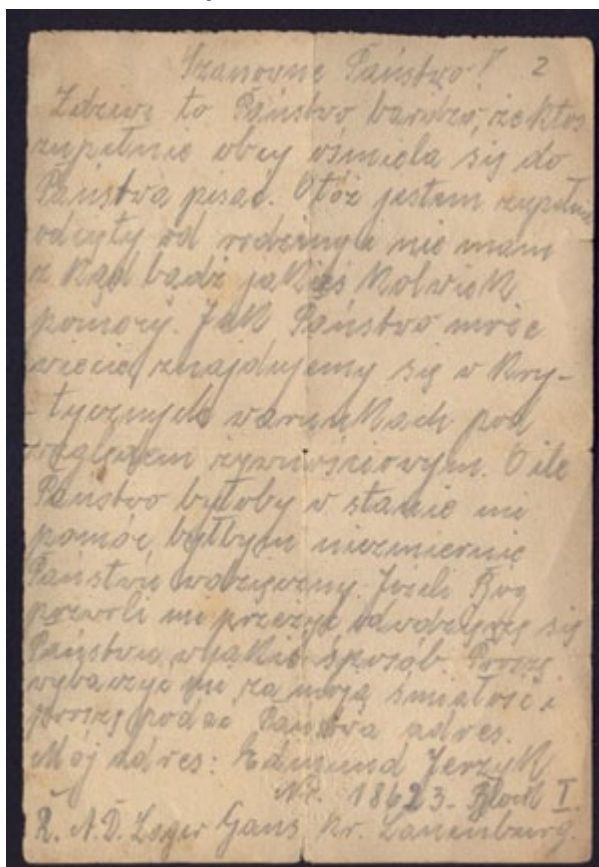 Szanowne Państwo! 2
Zdziwi to Państwo bardzo, że ktoś
zupełnie obcy ośmiela się do
Państwa pisać. Otóż jestem zupełnie
odcięty od rodziny i nie mam
z kąd bądź jakiejś kolwiek
pomocy. Jak Państwo może
wiecie, znajdujemy się w kry-
- tycznych warunkach pod
względem żywnościowym. O ile
Państwo byłoby w stanie mi
pomóc, byłbym niezmiernie
Państwu wdzięczny. Jeżeli Bóg
pozwoli mi przeżyć odwdzięczę się
Państwu w jakiś sposób. Proszę
wybaczyć mi za moją śmiałość i
proszę podać Państwa adres.
Mój adres: Edmund Jerzyk
Nr. 18623. Block I.
R. A. D. Lager Gans Kr. Lauenburg.